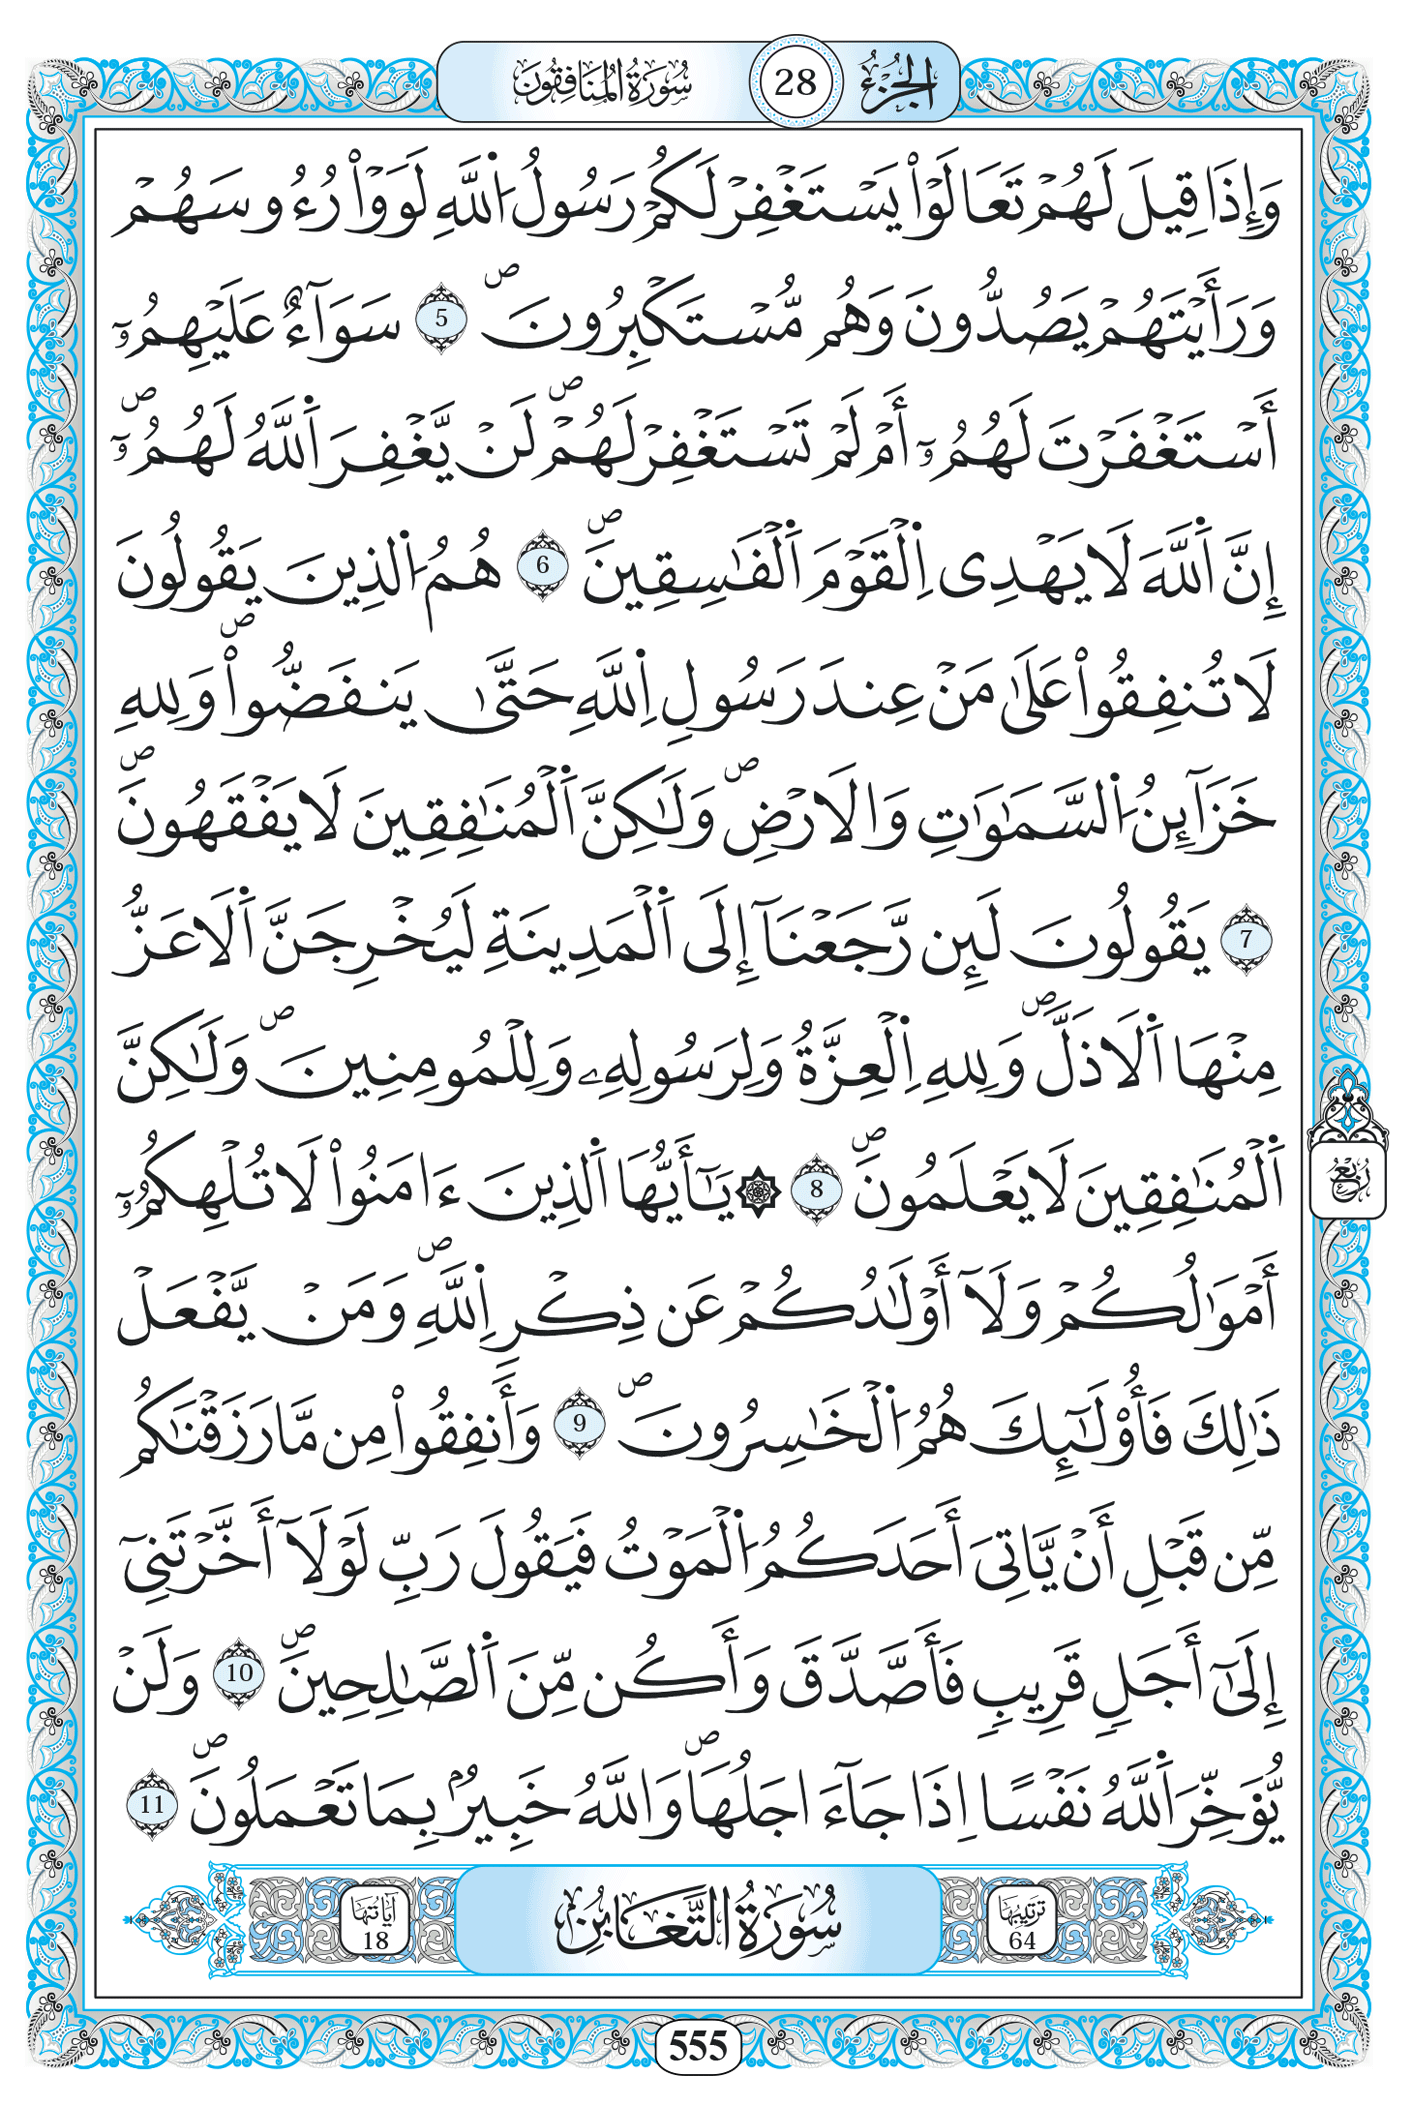 سُورَةُ الْمُنَافِقُونَ
28
الجُزْءُ
وَإِذَا قِيلَ لَهُمْ تَعَالَوْاْ يَسْتَغْفِرْ لَكُمْ رَسُولُ اُ۬للَّهِ لَوَوْاْ رُءُوسَهُمْ
وَرَأَيْتَهُمْ يَصُدُّونَ وَهُم مُّسْتَكْبِرُونَۖ 5 سَوَآءٌ عَلَيْهِمُۥٓ
أَسْتَغْفَرْتَ لَهُمُۥٓ أَمْ لَمْ تَسْتَغْفِرْ لَهُمْۖ لَنْ يَّغْفِرَ اَ۬للَّهُ لَهُمُۥٓۖ
إِنَّ اَ۬للَّهَ لَا يَهْدِى اِ۬لْقَوْمَ اَ۬لْفَٰسِقِينَۖ 6 هُمُ اُ۬لذِينَ يَقُولُونَ
لَا تُنفِقُواْ عَلَىٰ مَنْ عِندَ رَسُولِ اِ۬للَّهِ حَتَّىٰ يَنفَضُّواْۖ وَلِلهِ
خَزَآئِنُ اُ۬لسَّمَٰوَٰتِ وَالَارْضِۖ وَلَٰكِنَّ اَ۬لْمُنَٰفِقِينَ لَا يَفْقَهُونَۖ
7 يَقُولُونَ لَئِن رَّجَعْنَآ إِلَى اَ۬لْمَدِينَةِ لَيُخْرِجَنَّ اَ۬لَاعَزُّ
مِنْهَا اَ۬لَاذَلَّۖ وَلِلهِ اِ۬لْعِزَّةُ وَلِرَسُولِهِۦ وَلِلْمُومِنِينَۖ وَلَٰكِنَّ
اَ۬لْمُنَٰفِقِينَ لَا يَعْلَمُونَۖ 8 ۞ يَٰٓأَيُّهَا اَ۬لذِينَ ءَامَنُواْ لَا تُلْهِكُمُۥٓ
أَمْوَٰلُكُمْ وَلَآ أَوْلَٰدُكُمْ عَن ذِكْرِ اِ۬للَّهِۖ وَمَنْ يَّفْعَلْ
ذَٰلِكَ فَأُوْلَٰٓئِكَ هُمُ اُ۬لْخَٰسِرُونَۖ 9 وَأَنفِقُواْ مِن مَّا رَزَقْنَٰكُم
مِّن قَبْلِ أَنْ يَّاتِىَ أَحَدَكُمُ اُ۬لْمَوْتُ فَيَقُولَ رَبِّ لَوْلَآ أَخَّرْتَنِىٓ
إِلَىٰٓ أَجَلٍ قَرِيبٍ فَأَصَّدَّقَ وَأَكُن مِّنَ اَ۬لصَّٰلِحِينَۖ 10 وَلَنْ
يُّؤَخِّرَ اَ۬للَّهُ نَفْسًا اِذَا جَآءَ اجَلُهَاۖ وَاللَّهُ خَبِيرُۢ بِمَا تَعْمَلُونَۖ 11
رُبُع
تَرْتِيبُهَا
64
سُورَةُ التَّغَابُنِ
آيَاتُهَا
18
555